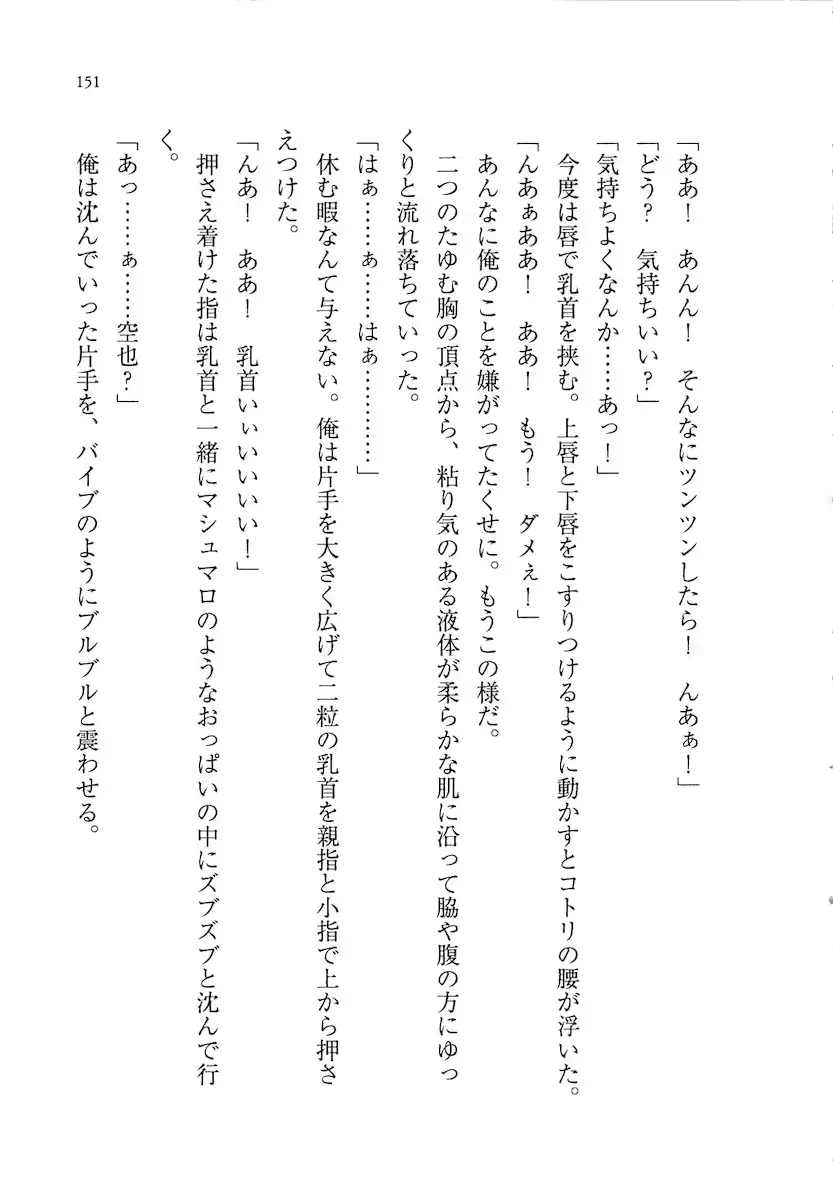 151
「ああ！　あんん！　そんなにツンツンしたら！　んあぁ！」
「どう？　気持ちいい？」
「気持ちよくなんか……あっ！」
　今度は唇で乳首を挟む。上唇と下唇をこすりつけるように動かすとコトリの腰が浮いた。
「んあぁああ！　ああ！　もう！　ダメぇ！」
　あんなに俺のことを嫌がってたくせに。もうこの様だ。
　二つのたゆむ胸の頂点から、粘り気のある液体が柔らかな肌に沿って脇や腹の方にゆっ
くりと流れ落ちていった。
「はぁ……ぁ……はぁ…………」
　休む暇なんて与えない。俺は片手を大きく広げて二粒の乳首を親指と小指で上から押さ
えつけた。
「んあ！　ああ！　乳首いぃいいいい！」
　押さえ着けた指は乳首と一緒にマシュマロのようなおっぱいの中にズブズブと沈んで行
く。
「あっ……ぁ……空也？」
　俺は沈んでいった片手を、バイブのようにブルブルと震わせる。